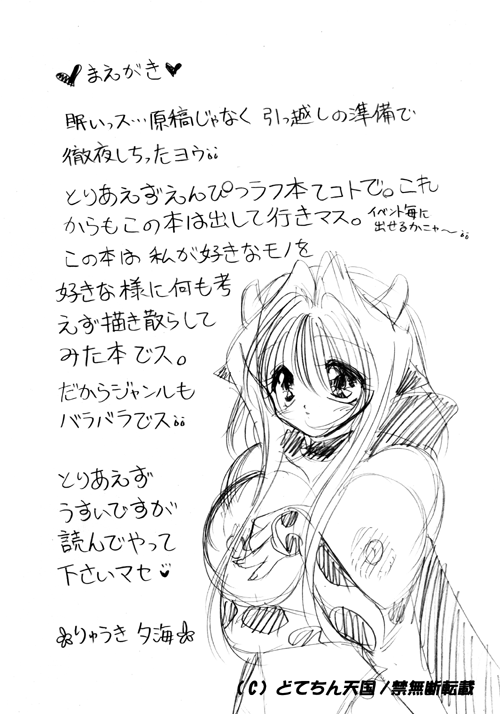 ♥まえがき♥
眠いっス…原稿じゃなく 引っ越しの準備で
徹夜しちったヨウ;;
とりあえずえんぴつラフ本てコトで。これ
からもこの本は出して行きマス。イベント毎に
出せるかニャ〜;;
この本は 私が好きなモノを
好きな様に何も考
えず描き散らして
みた本でス。
だからジャンルも
バラバラでス;;
とりあえず
うすいですが
読んでやって
下さいマセ♥
りゅうき 夕海
(C) どてちん天国/禁無断転載